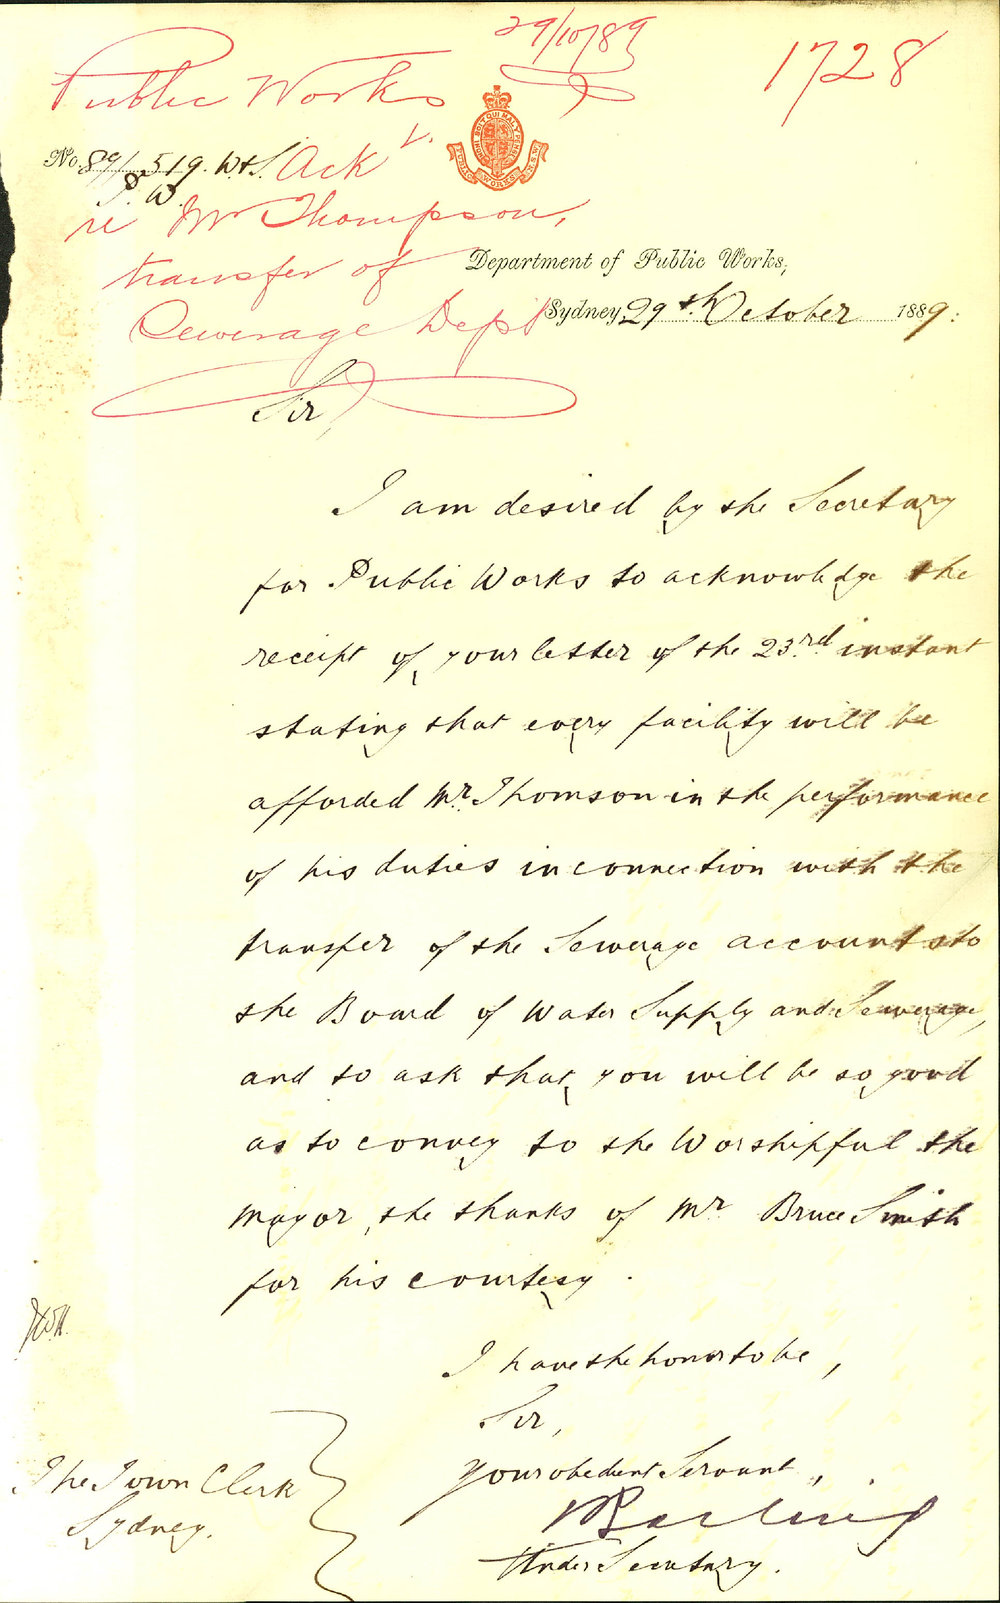 29/10/89
1728
Public Works
HONI SOIT QUI MAL Y PENSE
PUBLIC WORKS N.S.W.
No. 89/519. W&S. Ack
P. W.
re Mr Thompson,
transfer of
Sewerage Dept
Department of Public Works,
Sydney, 29th October 1889.
Sir,
I am desired by the Secretary
for Public Works to acknowledge the
receipt of your letter of the 23rd instant
stating that every facility will be
afforded Mr. Thomson in the performance
of his duties in connection with the
transfer of the Sewerage accounts to
the Board of Water Supply and Sewerage,
and to ask that you will be so good
as to convey to the Worshipful the
Mayor, the thanks of Mr Bruce Smith
for his courtesy.
I have the honor to be,
Sir,
Your obedient Servant,
Barling
Under Secretary.
The Town Clerk
Sydney.